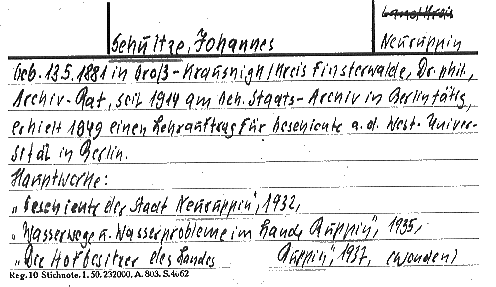 Land Kreis
Schultze, Johannes
Neuruppin
Geb. 13.5.1881 in Groß-Krausnigh/Kreis Finsterwalde, Dr. phil.,
Archiv-Rat, seit 1914 am Geh. Staats-Archiv in Berlin tätig,
erhielt 1949 einen Lehrauftrag für Geschichte a. d. West-Univer-
sität in Berlin.
Hauptwerke:
„Geschichte der Stadt Neuruppin", 1932,
„Wasserwege u. Wasserprobleme im Lande Ruppin", 1935,
„Die Hofbesitzer des Landes Ruppin", 1937,
Reg. 10 Stichnote. 1. 50. 232000. A. 803. S. 4062